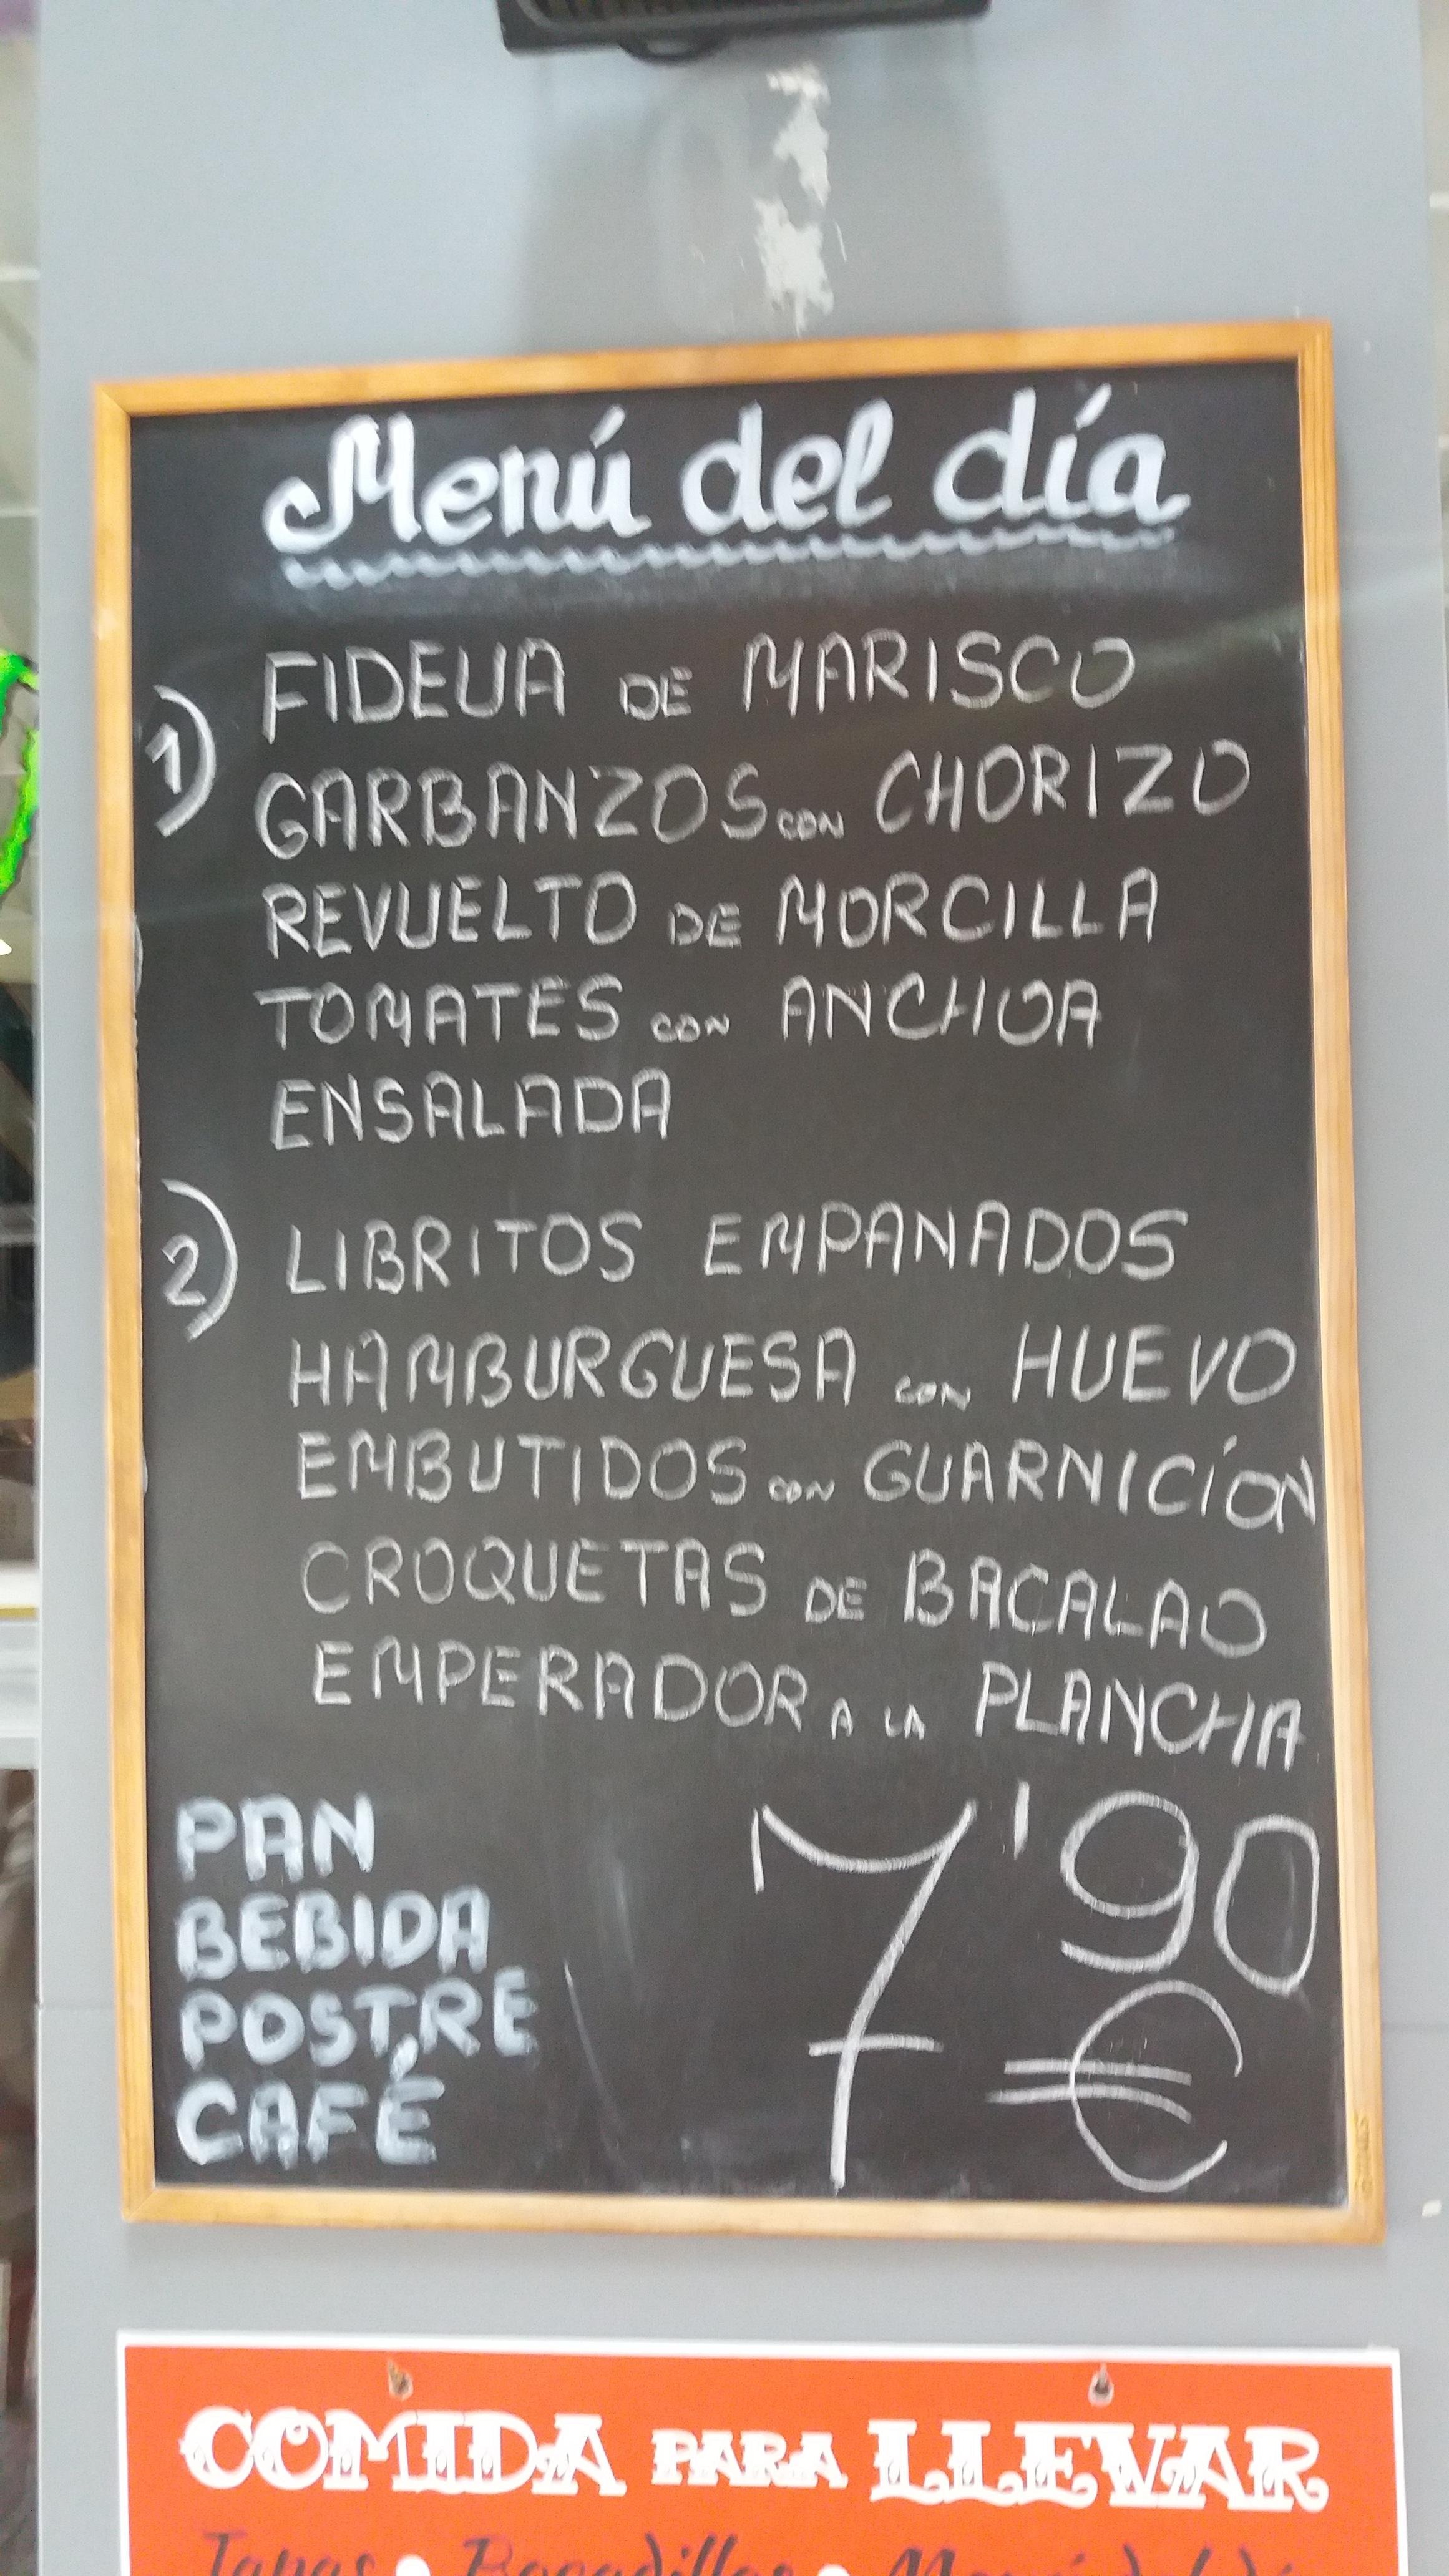 Menú del día
1) FIDEUA DE MARISCO
GARBANZOS CON CHORIZO
REVUELTO DE MORCILLA
TOMATES CON ANCHOA
ENSALADA
2) LIBRITOS EMPANADOS
HAMBURGUESA CON HUEVO
EMBUTIDOS CON GUARNICÍON
CROQUETAS DE BACALAO
EMPERADOR A LA PLANCHA
PAN
BEBIDA
POSTRE
CAFÉ
7'90
€
COMIDA PARA LLEVAR
Tapas • Bocadillos •